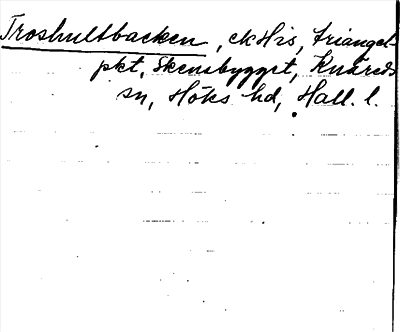 Troshultbacken, ekHrs, triangel-
pkt, Skensbygget, Knäreds
sn, Höks hd, Hall. l.